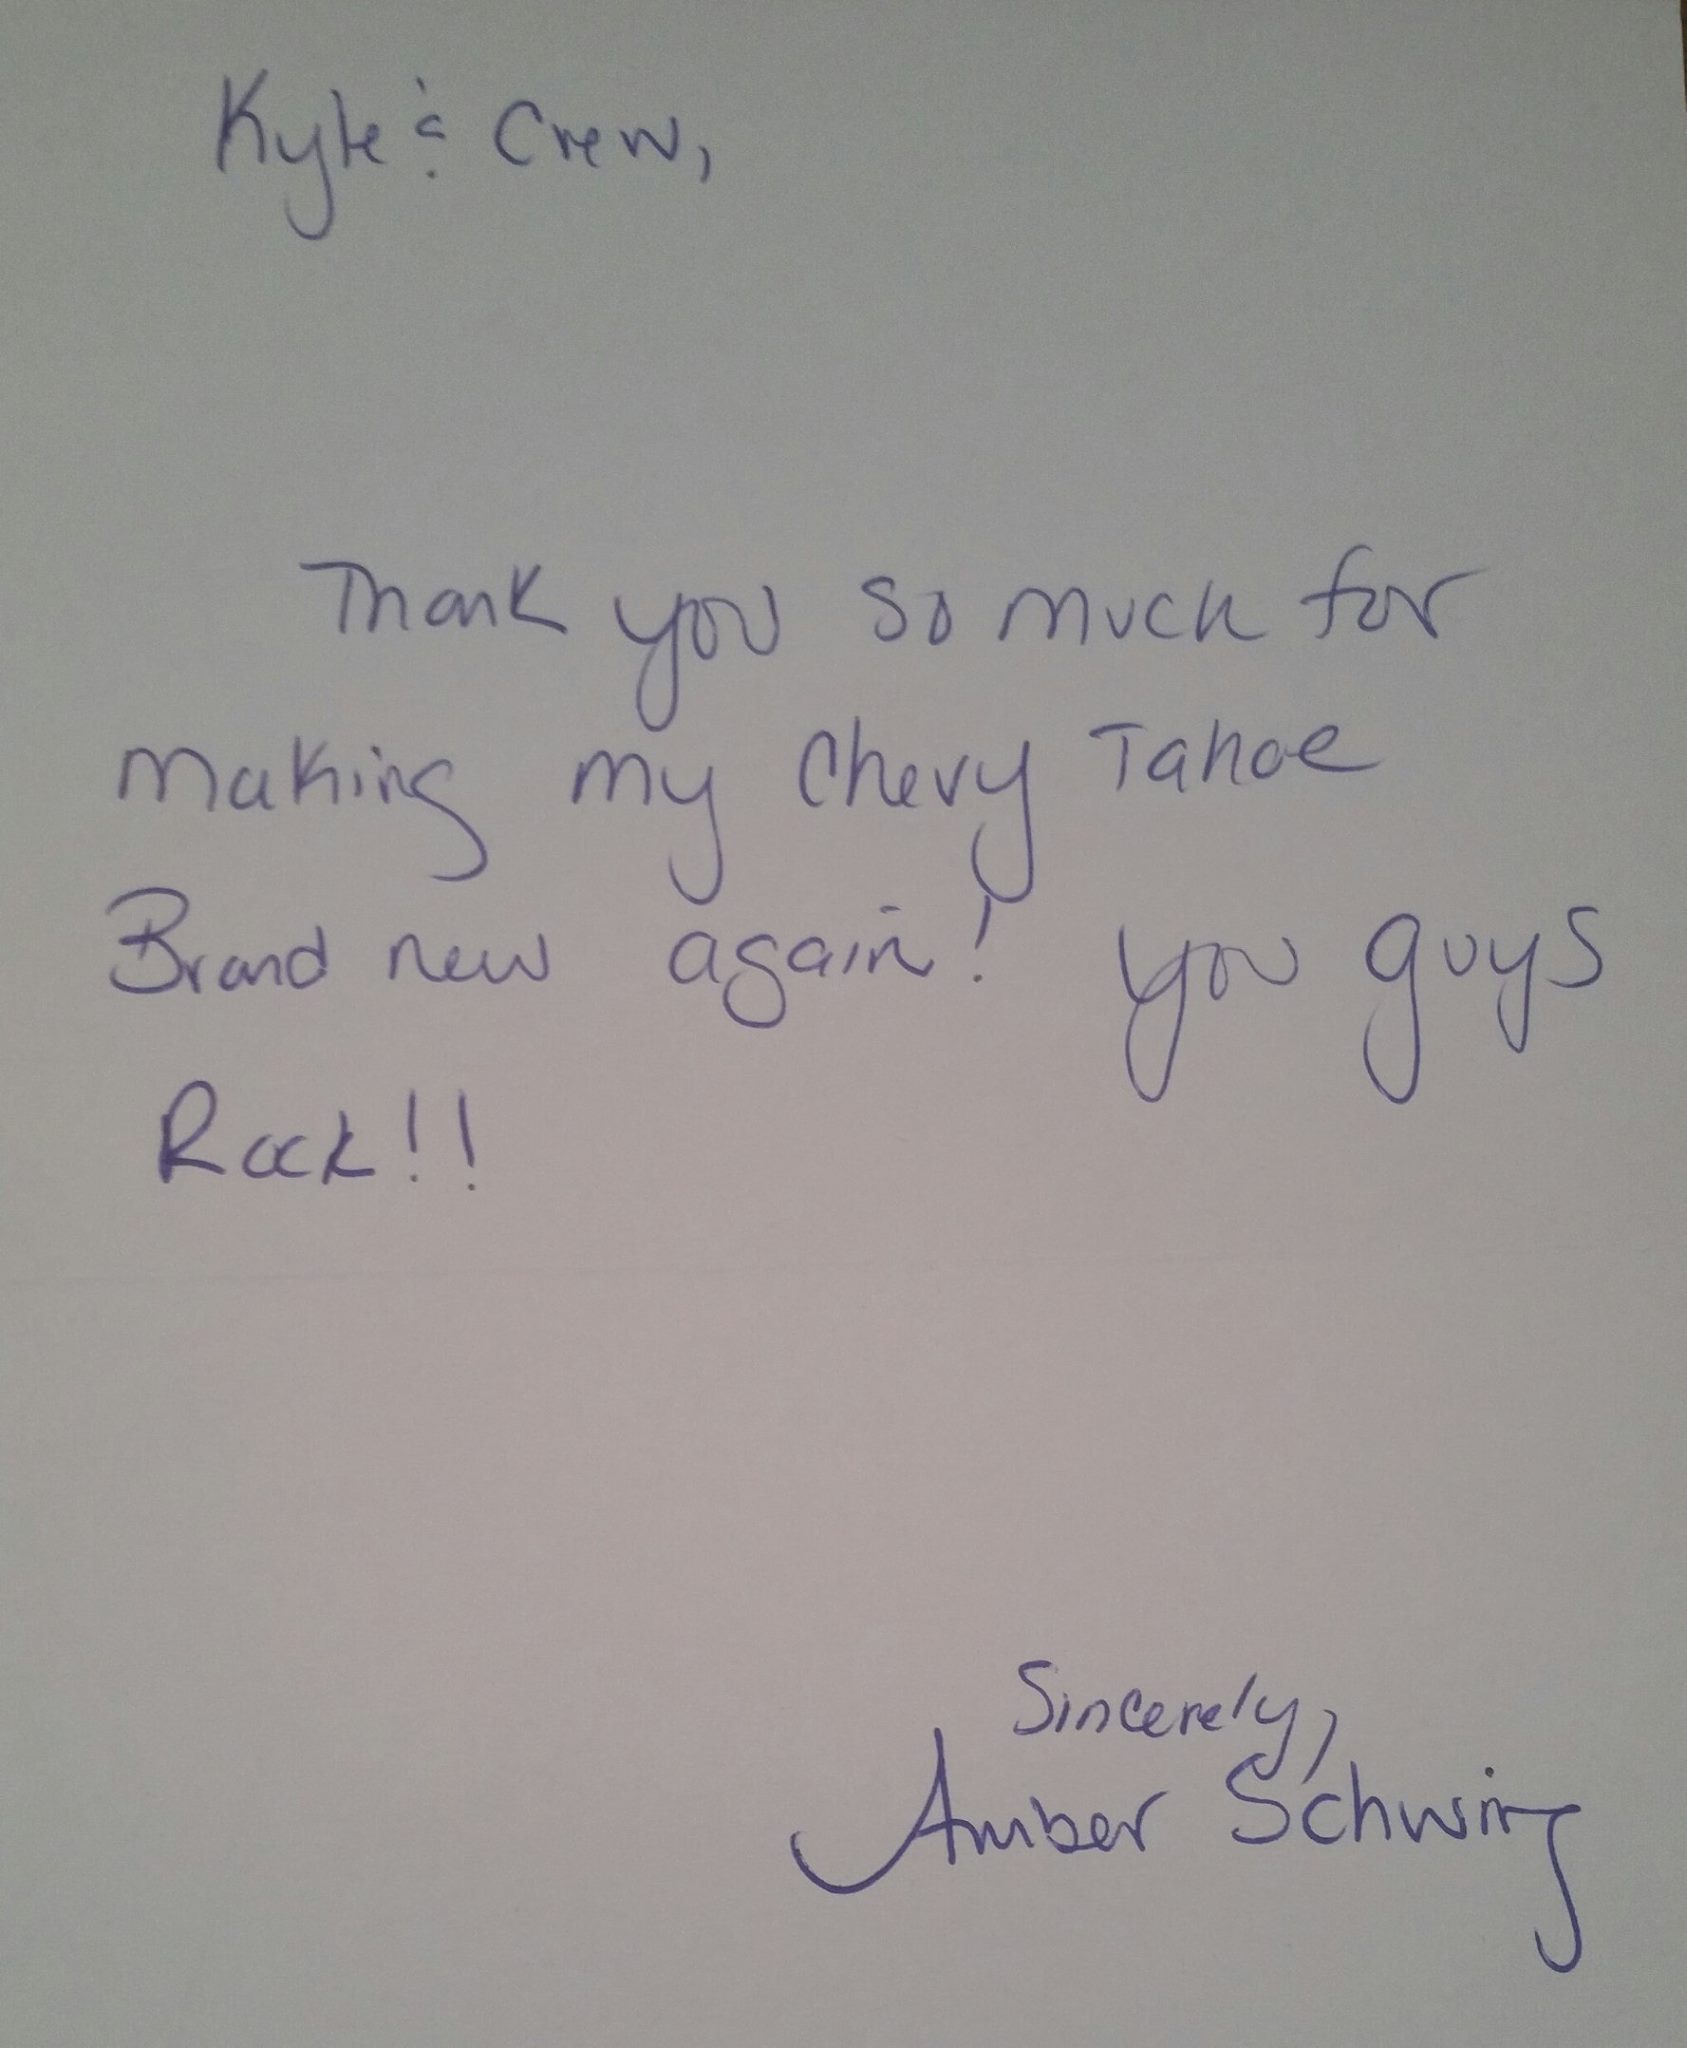 Kyle & Crew,
Thank you so much for
making my Chevy Tahoe
Brand new again! you guys
Rock!!
Sincerely,
Amber Schwing